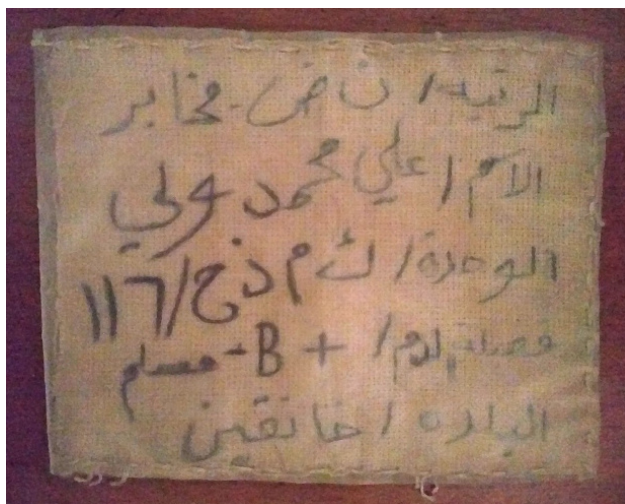 الرتبه / ن ض. مخابر
الاسم / علي محمد ولي
الوحدة / ك م خ ج / ١١٦
فصيلة الدم / + B - مسلم
البلده / خانقين